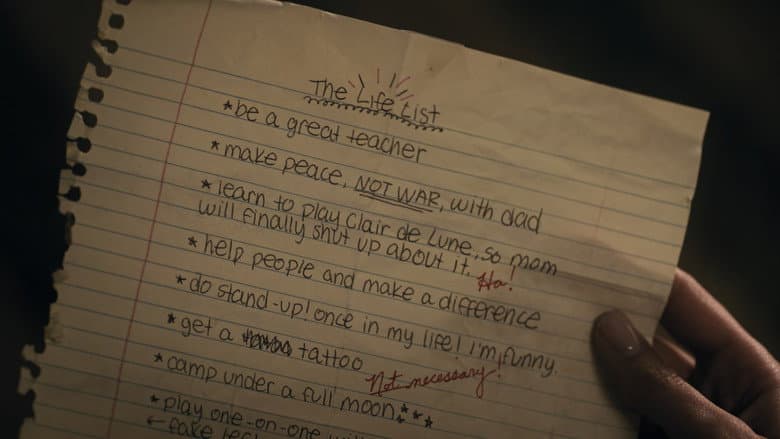 The Life List
*be a great teacher
*make peace, NOT WAR, with dad
*learn to play Clair de Lune, so mom
will finally shut up about it. Ha!
*help people and make a difference
*do stand-up! once in my life! I'm funny.
*get a tattoo
Not necessary!
*camp under a full moon***
*play one-on-one
←fake